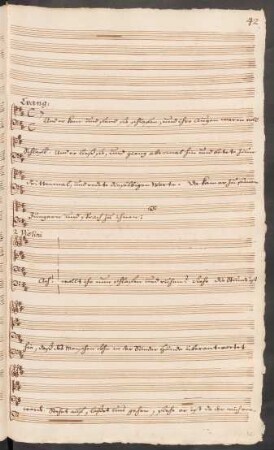 42
Evang:
Und er kam und fand sie schlafend, und ihre Augen waren voll
Schlafs. Und er ließ sie, und gieng abermal hin und betete zum
drittenmal, und redete dieselbigen Worte. Da kam er zu seinen
Jüngern und sprach zu ihnen:
2 Violini
Ach! wollt ihr nun schlafen und ruhen? Siehe die Stunde ist
hie, daß des Menschen Sohn in der Sünder Hände überantwortet
wird. Stehet auf, laßet uns gehen, siehe er ist da der mich